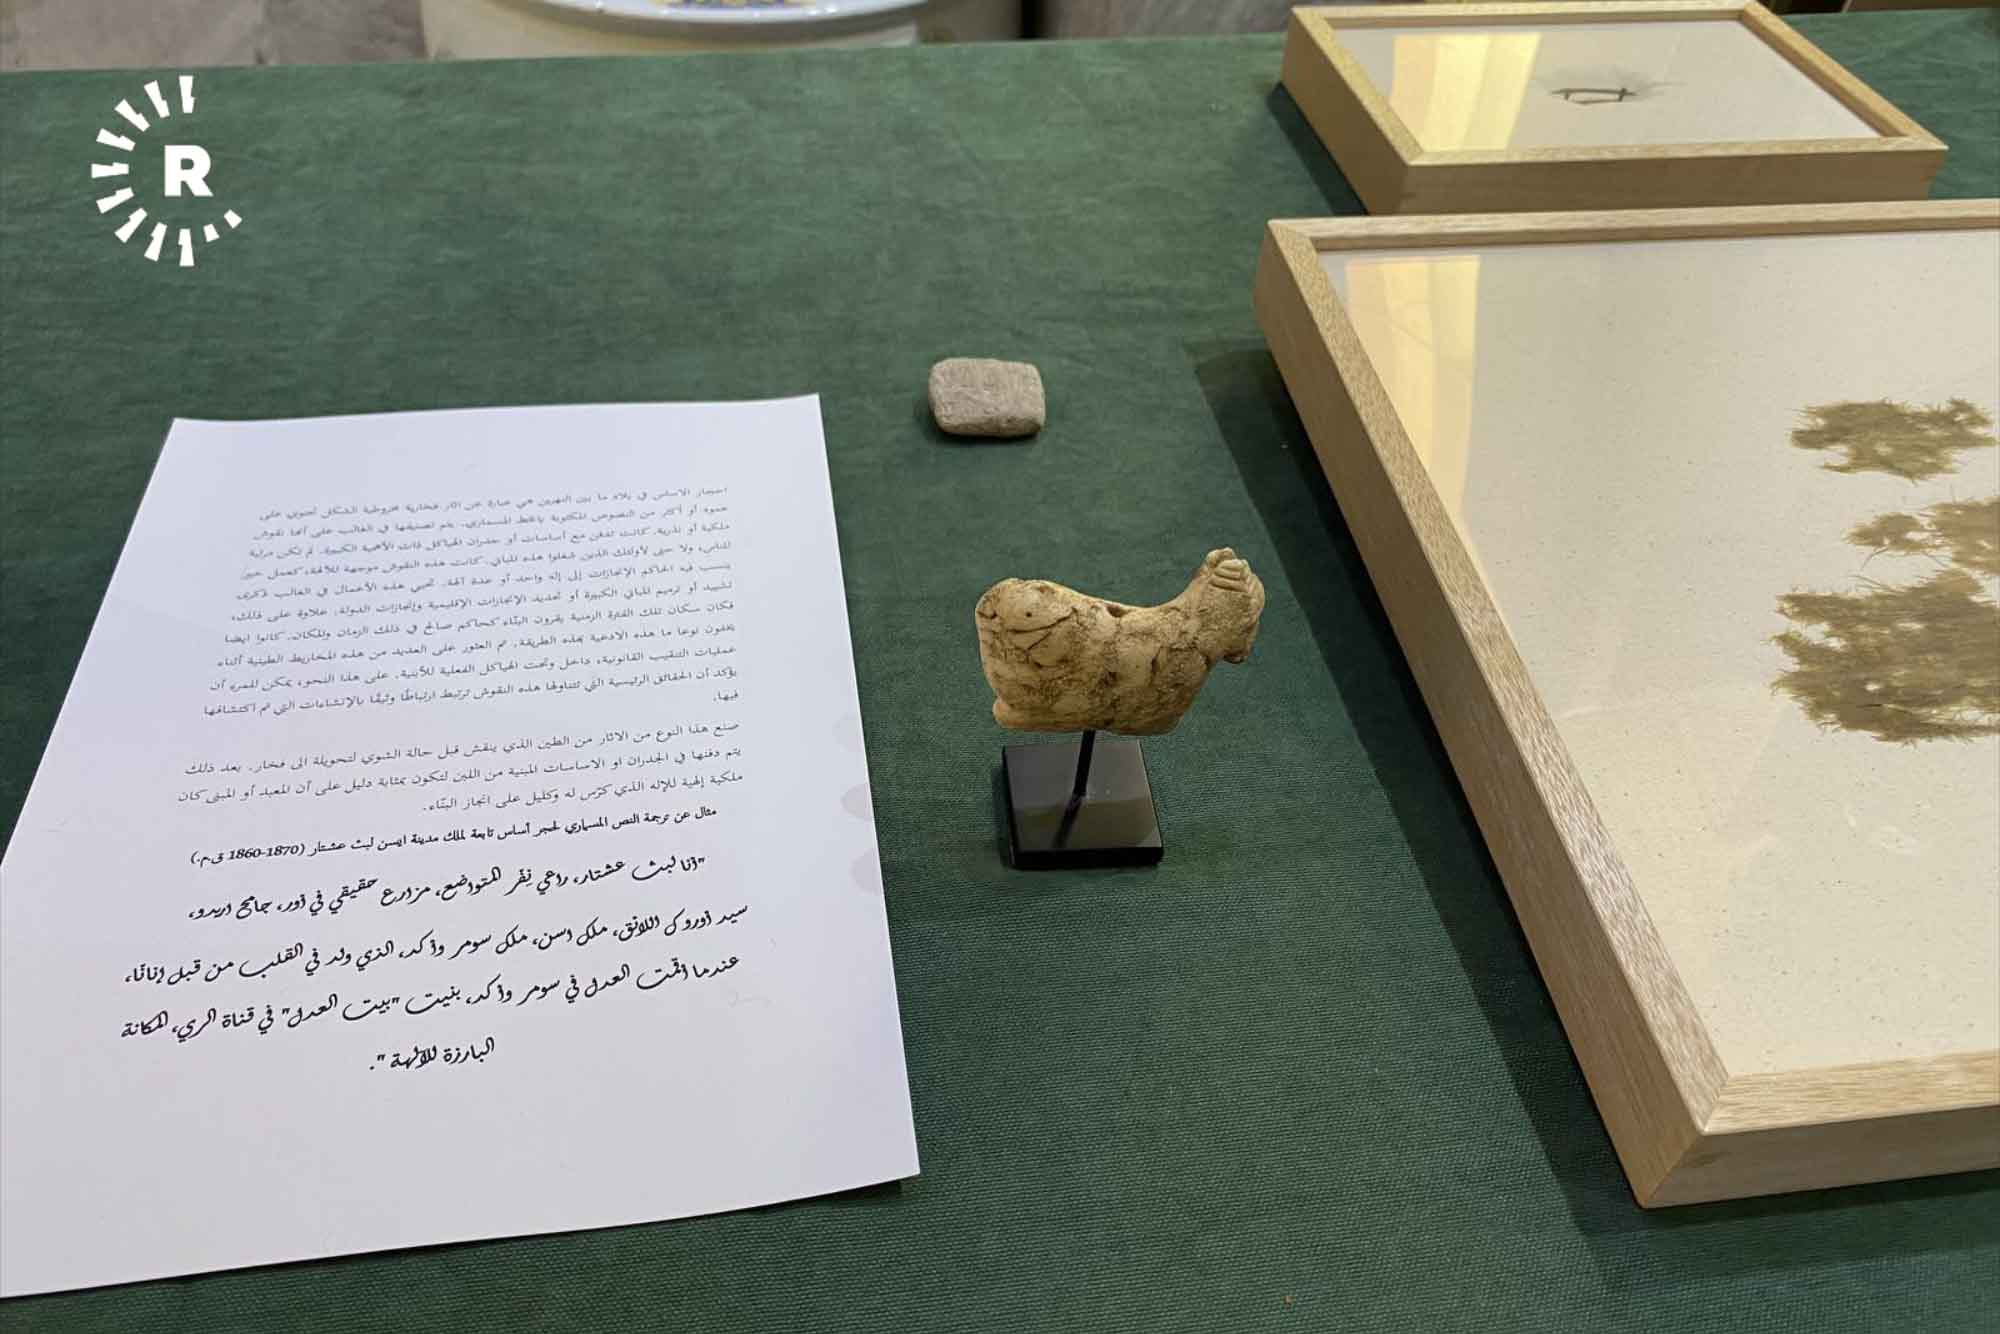 R
احجار الاساس في بلاد ما بين النهرين هي عبارة عن اثار فخارية مخروطية الشكل تحتوي على
عمود أو أكثر من النصوص المكتوبة بالخط المسماري. يتم تصنيفها في الغالب على أنها نقوش
ملكية أو نذرية. كانت تدفن مع أساسات أو جدران الهياكل ذات الأهمية الكبيرة. لم تكن مرئية
للناس، ولا حتى لأولئك الذين شغلوا هذه المباني. كانت هذه النقوش موجهة للآلهة، كعمل خير
ينسب فيه الحاكم الإنجازات إلى إله واحد أو عدة آلهة. تحيي هذه الأعمال في الغالب ذكرى
تشييد أو ترميم المباني الكبيرة أو تمديد الإنجازات الإقليمية وإنجازات الدولة. علاوة على ذلك،
فكان سكان تلك الفترة الزمنية يقرون البنّاء كحاكم صالح في ذلك الزمان والمكان. كانوا ايضا
نوعا ما هذه الادعية بهذه الطريقة. تم العثور على العديد من هذه المخاريط الطينية أثناء
عمليات التنقيب القانونية، داخل وتحت الهياكل الفعلية للأبنية. على هذا النحو، يمكن للمرء أن
يؤكد أن الحقائق الرئيسية التي تتناولها هذه النقوش ترتبط ارتباطًا وثيقًا بالإنشاءات التي تم اكتشافها
فيها.
صنع هذا النوع من الاثار من الطين الذي ينقش قبل حالة الشوي لتحويلة الى فخار. بعد ذلك
يتم دفنها في الجدران او الاساسات المبنية من اللبن لتكون بمثابة دليل على أن المعبد أو المبنى كان
ملكية إلهية للإله الذي كرّس له وكليل على انجاز البنّاء.
مثال عن ترجمة النص المسماري لحجر أساس تابعة لملك مدينة ايسن لبث عشتار (1870-1860 ق.م.)
"أنا لبث عشتار، راعي نِفّر المتواضع، مزارع حقيقي في أور، جامح اريدو،
سيد أوروك اللائق، ملك اسن، ملك سومر وأكد، الذي ولد في القلب من قبل إنانّا،
عندما أقمت العدل في سومر وأكد، بنيت "بيت العدل" في قناة الري، المكانة
البارزة للآلهة".